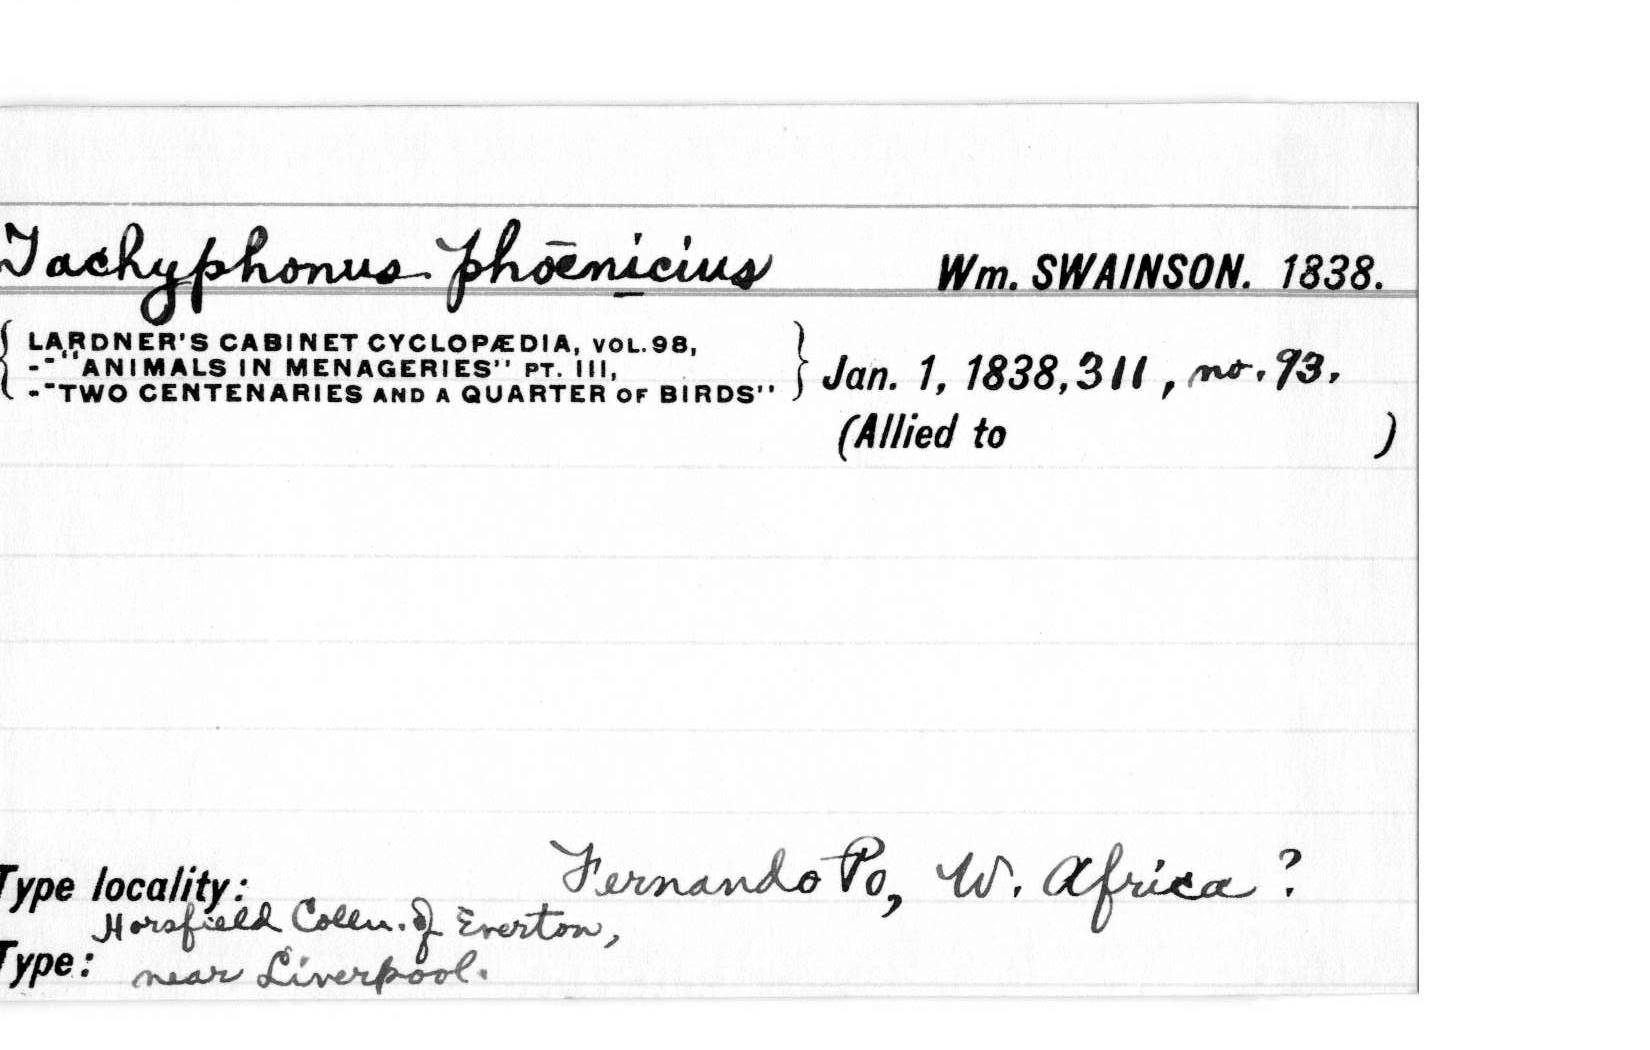 Tachyphonus phōenicius Wm. SWAINSON. 1838.
LARDNER'S CABINET CYCLOPÆDIA, VOL. 98,
-"ANIMALS IN MENAGERIES" PT. III, Jan. 1, 1838, 311, no. 93.
-"TWO CENTENARIES AND A QUARTER OF BIRDS"
(Allied to )
Type locality: Fernando Po, W. Africa ?
Horsfield Colln. of Everton,
Type: near Liverpool.